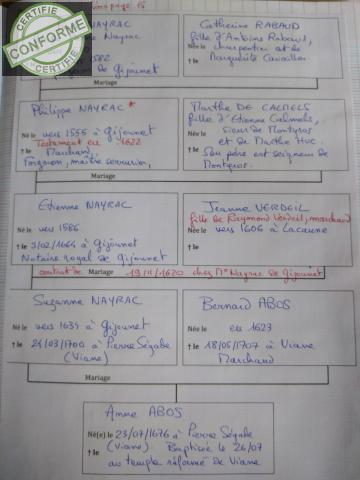 CERTIFIÉ
CONFORME
CERTIFIÉ
page 15
NAYRAC
Nayrac
1582
de Gijounet
Catherine RABAUD
fille d'Antoine Rabaud,
charpentier et de
Marguerite Cavailhès
Mariage
Philippe NAYRAC *
Né le vers 1555 à Gijounet
Testament en 1622
† le Marchand,
Forgeron, maître serrurier,
Marthe DE CALMELS
fille d'Etienne Calmels,
Né le Sieur de Montgros
et de Marthe Huc.
† le Son père est seigneur de
Montgros.
Mariage
Etienne NAYRAC
Né le vers 1586
† le 3/02/1664 à Gijounet
Notaire royal de Gijounet
Jeanne VERDEIL
fille de Raymond Verdeil, marchand
Né le vers 1606 à Lacaune
† le
contrat de Mariage 19/11/1620 chez Me Nayrac de Gijounet
Suzanne NAYRAC
Né le vers 1634 à Gijounet
† le 24/03/1700 à Pierre Ségabe
(Viane)
Bernard ABOS
Né le en 1623
† le 18/05/1707 à Viane
Marchand
Mariage
Anne ABOS
Né(e) le 23/07/1676 à Pierre Ségabe
(Viane). Baptisée le 26/07
† le au temple réformé de Viane